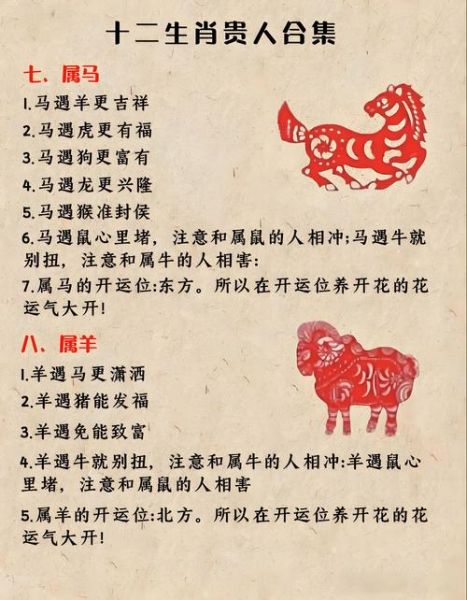 十二生肖贵人合集
七、属马
1.马遇羊更吉祥
2.马遇虎更有福
3.马遇狗更富有
4.马遇龙更兴隆
5.马遇猴准封侯
6.马遇鼠心里堵，注意和属鼠的人相冲;马遇牛就
别扭，注意和属牛的人相害:
7.属马的开运位:东方。所以在开运位养开花的花
运气大开!
八、属羊
1.羊遇马更潇洒
2.羊遇猪能发福
3.羊遇免能致富
4.羊遇牛就别扭，注意和属牛的人相冲:羊遇鼠心
里堵，注意和属鼠的人相害
5.属羊的开运位:北方。所以在开运位养开花的花
运气大开!